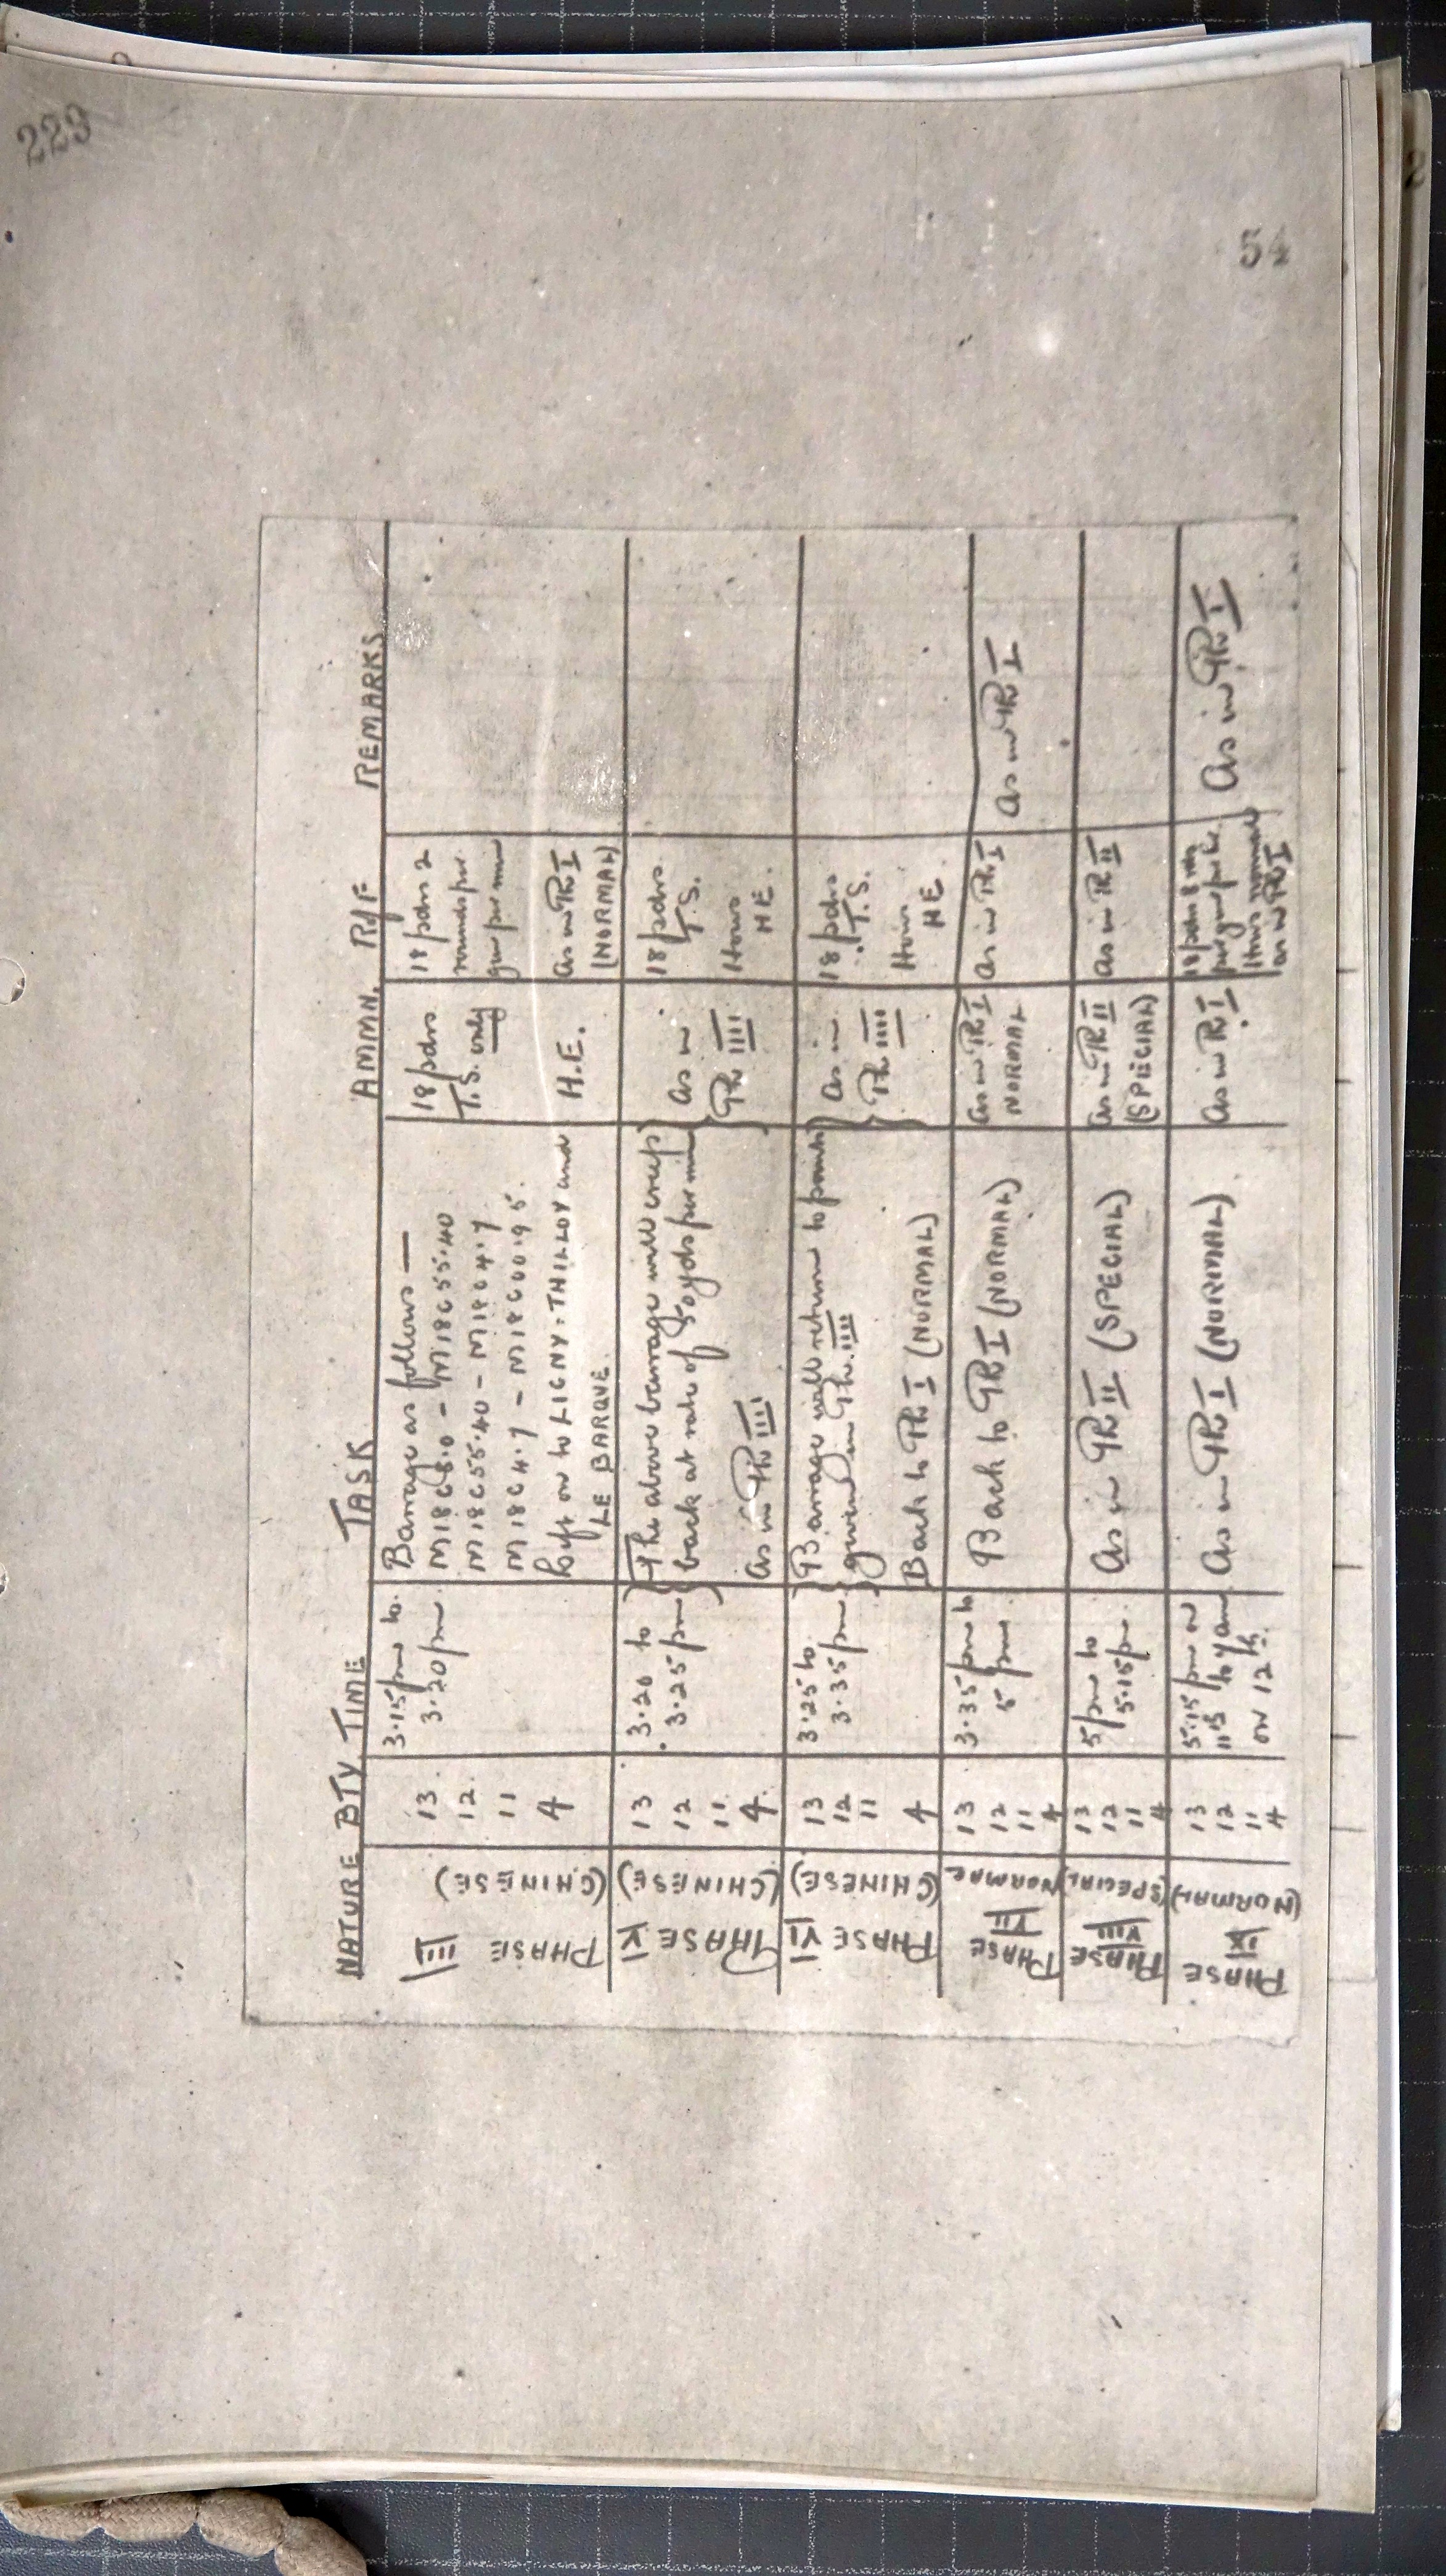 223
54
NATURE BTY TIME TASK AMMN. R of F REMARKS
PHASE IIII
(CHINESE)
13
12
11
4
3.15 pm to
3.20 pm
Barrage as follows —
M18C8.0 - M18C55.40
M18C55.40 - M18C4.7
M18C4.7 - M18C00.95.
Left on to LIGNY-THILLOY and
LE BARQUE
18 pdrs
T.S. only
H.E.
18 pdrs 2
rounds per
gun per min
As in Ph I
(NORMAL)
PHASE V
(CHINESE)
13
12
11
4
3.20 to
3.25 pm
The above barrage will creep
back at rate of 50 yds per min
As in Ph IIII
As in
Ph IIII
18 pdrs
T.S.
Hows
HE.
PHASE VI
(CHINESE)
13
12
11
4
3.25 to
3.35 pm
Barrage will return to points
given in Ph. IIII
Back to Ph I (NORMAL)
As in
Ph IIII
18 pdrs
T.S.
Hows
HE
PHASE VII
NORMAL
13
12
11
4
3.35 pm to
5 pm
Back to Ph I (NORMAL)
As in Ph I
NORMAL
As in Ph I
As in Ph I
PHASE VIII
(SPECIAL)
13
12
11
4
5 pm to
5.15 pm
As in Ph II (SPECIAL)
As in Ph II
(SPECIAL)
As in Ph II
PHASE IX
(NORMAL)
13
12
11
4
5.15 pm on
11th to 7 am
on 12th
As in Ph I (NORMAL)
As in Ph I
18 pdrs 8 rds
per gun per hr.
Hows normal
as in Ph I
As in Ph I